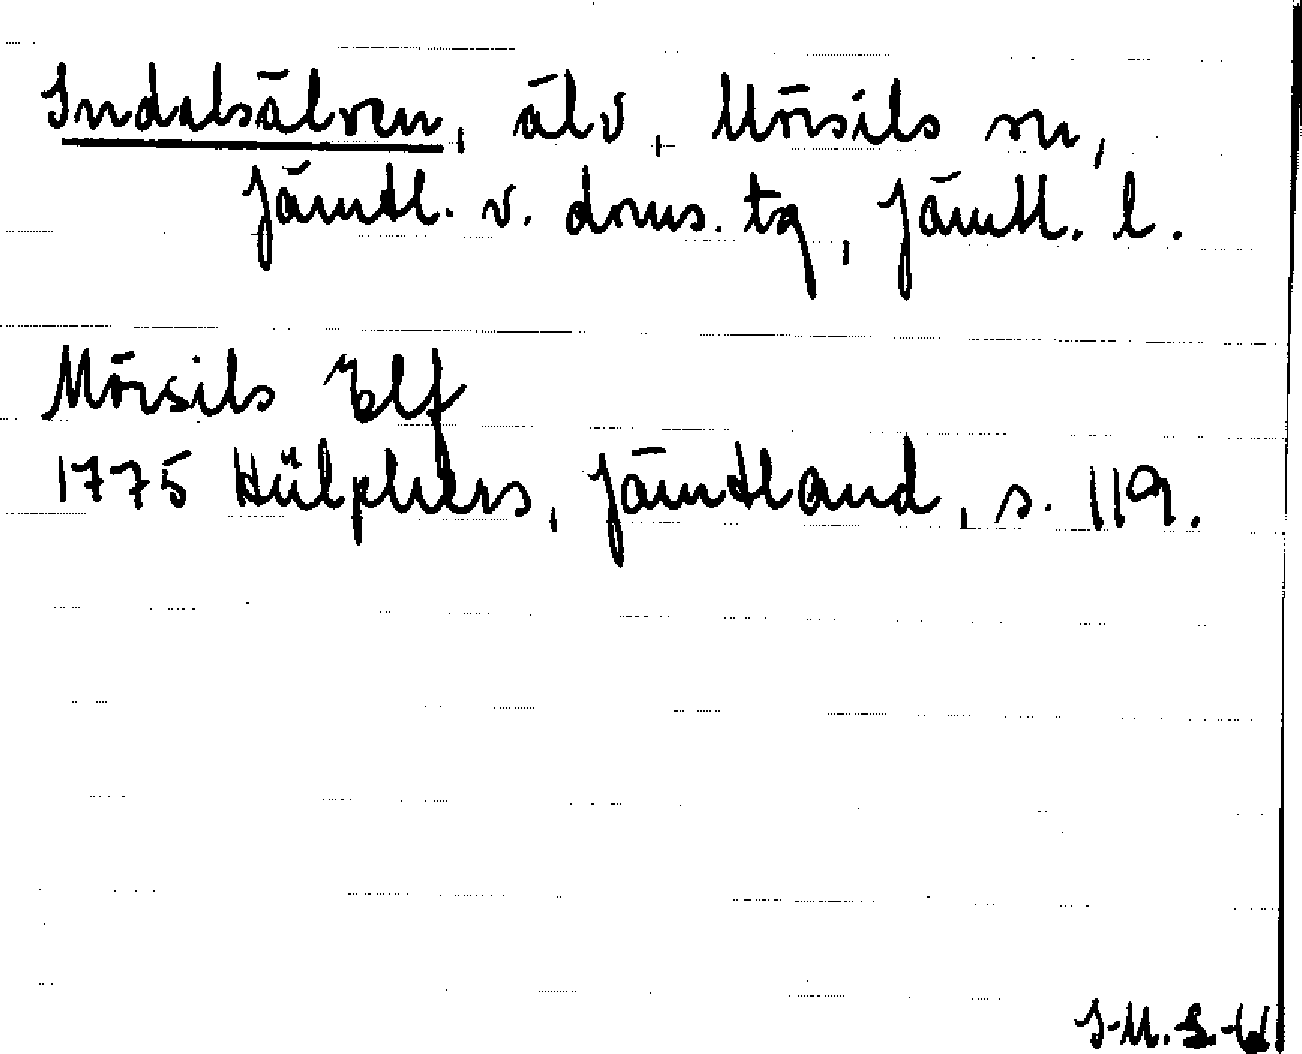 Indalsälven, älv, Mörsils sn,
Jämtl. v. doms. tg, Jämtl. l.
Mörsils Elf
1775 Hülphers, Jämtland, s. 119.